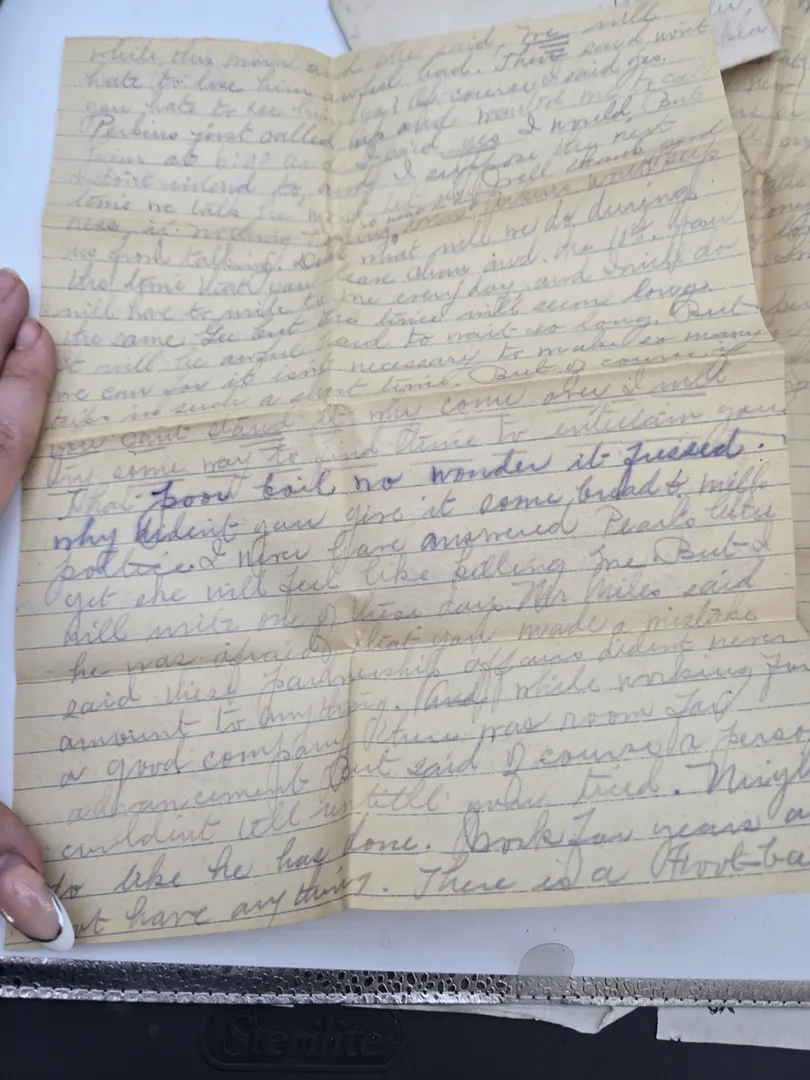 while this moon and one said, we will
hate to lose him awful bad. Then said wont
you hate to see him go? Of course I said yes.
Perkins just called me and wanted me to call
him at 6:00 and I said yes I would. But
I dont intend to, and I suppose the next
time we talk he
ness, if nothing Perkins would keep
us from talking. what will we do during
the time that you leave and the 10th. You
will have to write to me every day, and I will do
the same. Gee but this time will seem long.
It will be awful hard to wait so long. But
we can for it isnt necessary to make so many
trips in such a short time. But of course if
you cant stand it my come over I will
try some way to find time to entertain you
That poor boil no wonder it fussed.
why didn't you give it some bread & milk
poltice. I never have answered Pearls letter
yet she will feel like killing me. But I
will write one of these days. Mr Miles said
he was afraid that you made a mistake
said these partnership affairs dident never
amount to anything. And while working for
a good company there was room for
advancement. But said of course a person
couldint tell untill youve tried. Might
do like he has done. Work for years a
not have any thing. There is a Foot-ba
Sterilite